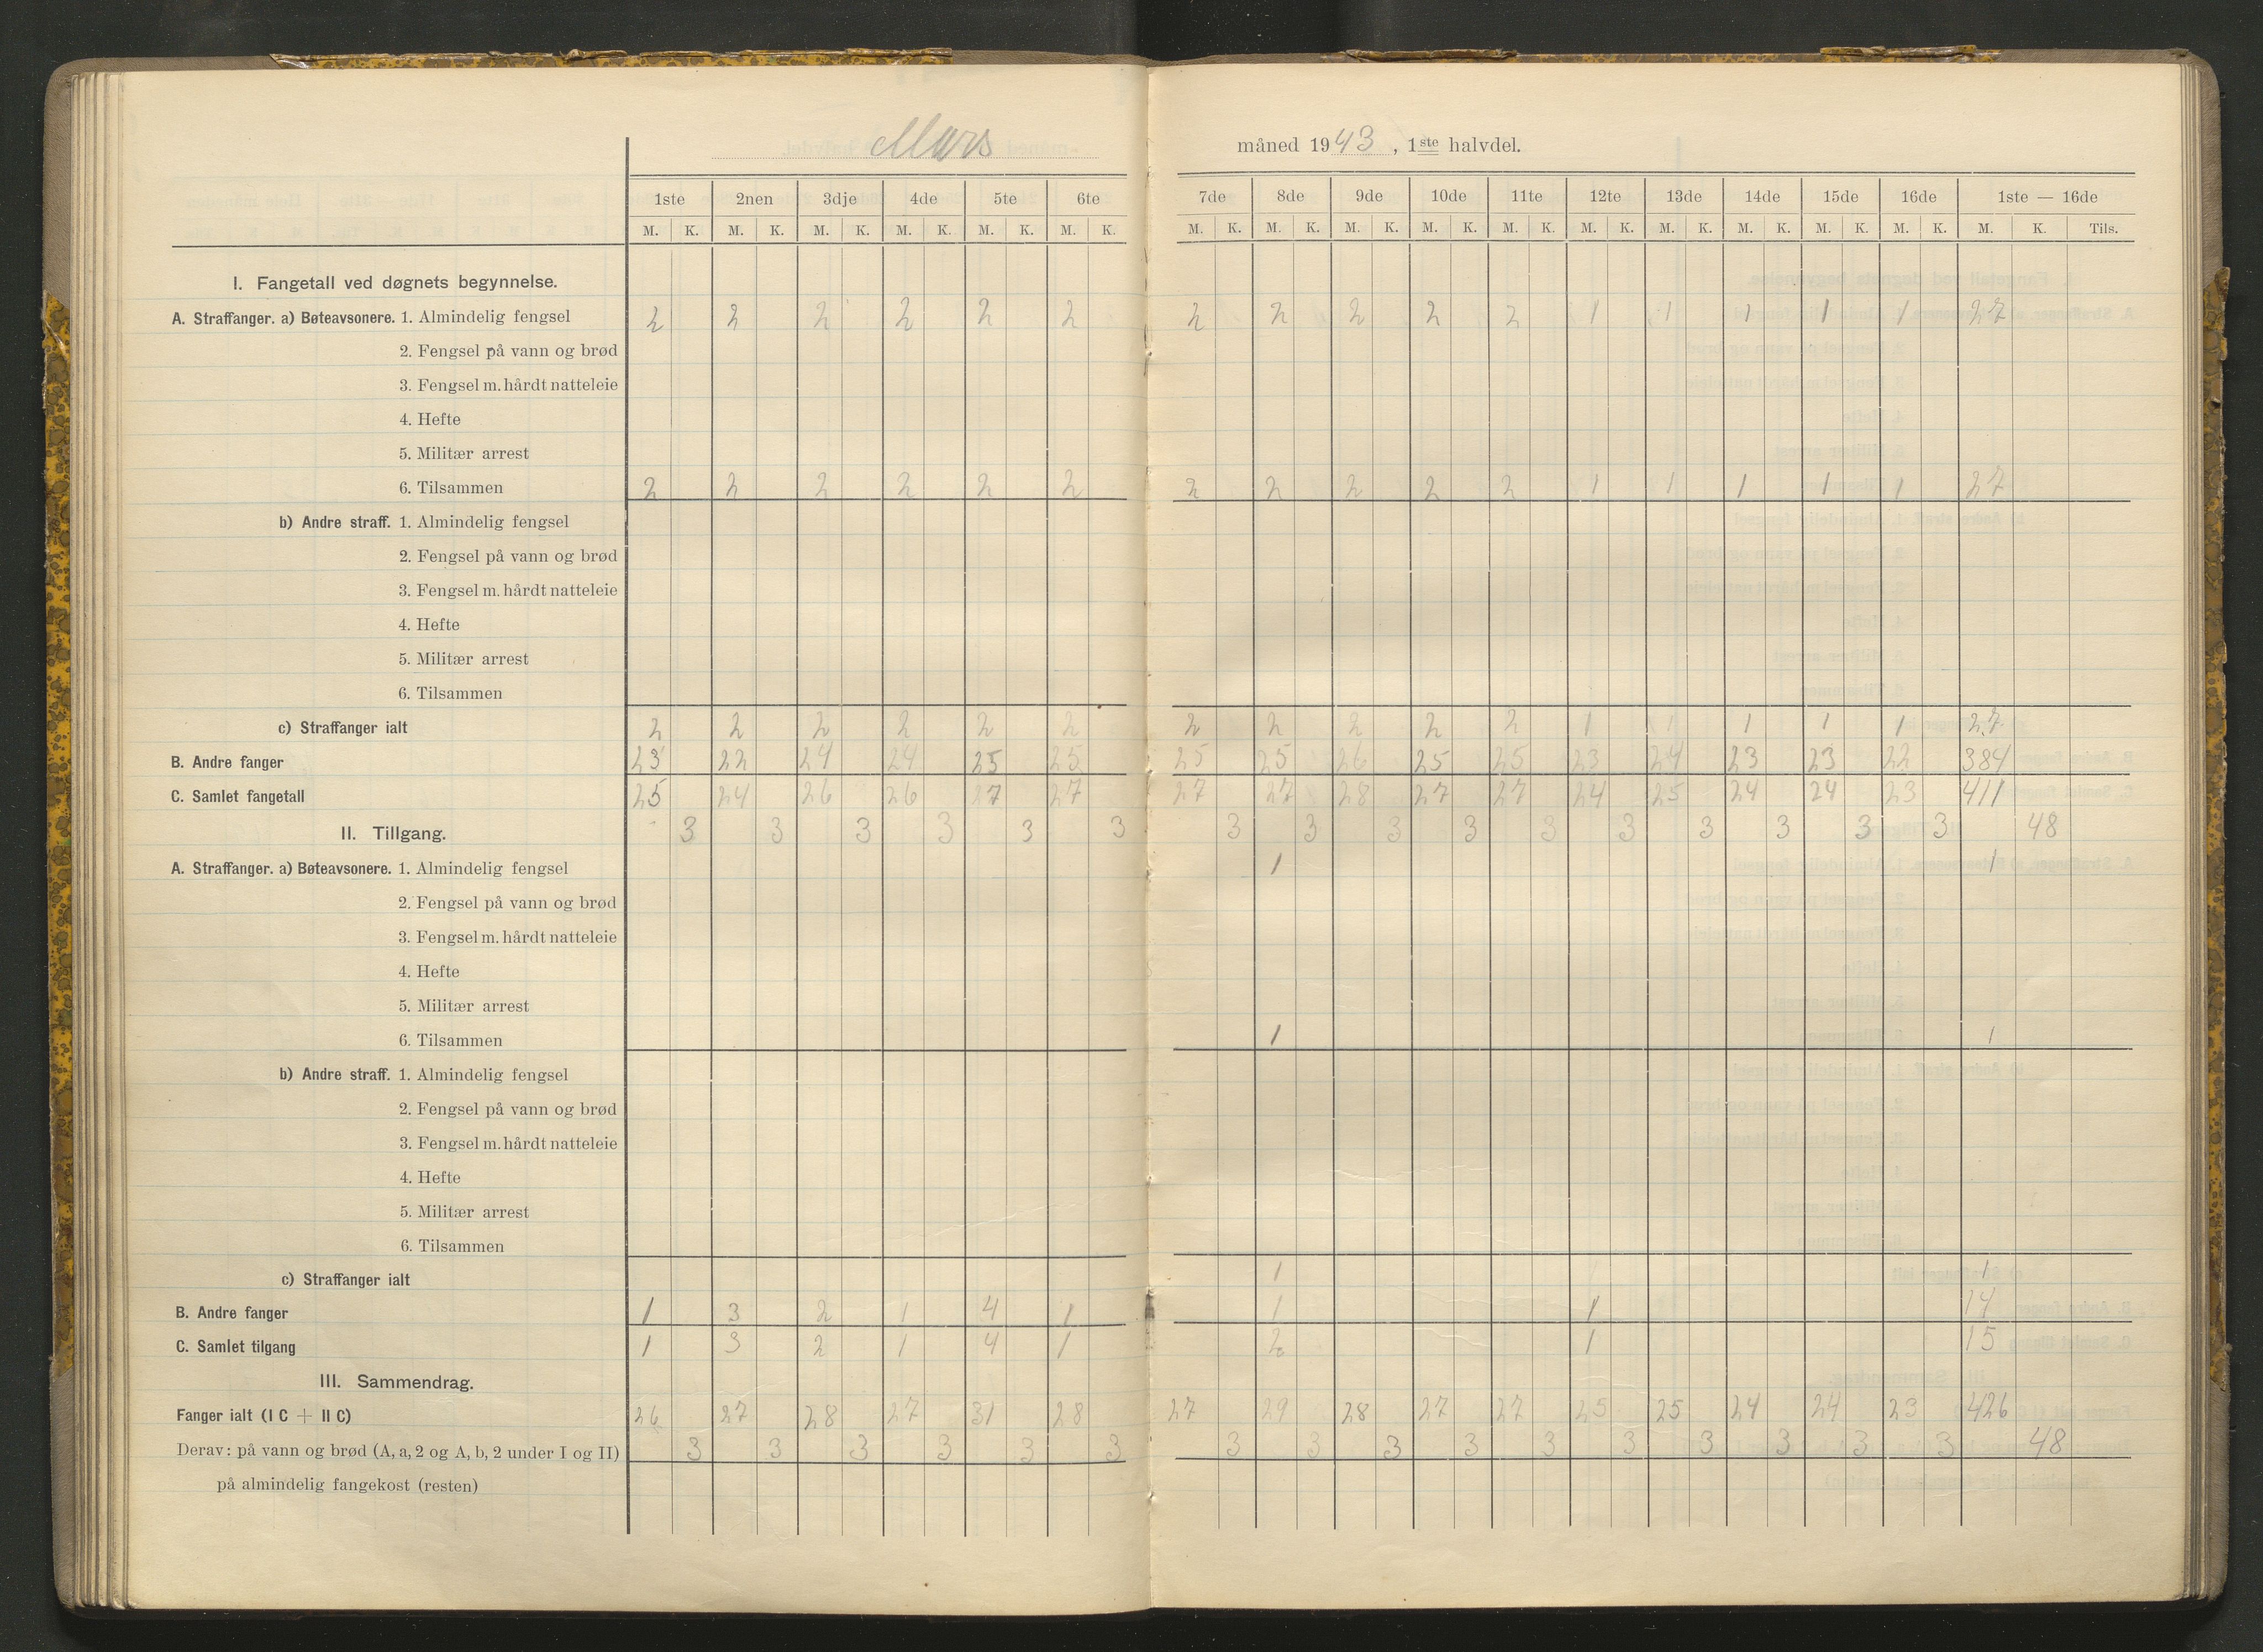 Mars måned 1943, 1ste halvdel.
1ste 2nen 3dje 4de 5te 6te 7de 8de 9de 10de 11te 12te 13de 14de 15de 16de 1ste — 16de
M. K. M. K. M. K. M. K. M. K. M. K. M. K. M. K. M. K. M. K. M. K. M. K. M. K. M. K. M. K. M. K. M. K. Tils.
I. Fangetall ved døgnets begynnelse.
A. Straffanger. a) Bøteavsonere. 1. Almindelig fengsel 2 2 2 2 2 2 2 2 2 2 2 1 1 1 1 1 27
2. Fengsel på vann og brød
3. Fengsel m. hårdt natteleie
4. Hefte
5. Militær arrest
6. Tilsammen 2 2 2 2 2 2 2 2 2 2 2 1 1 1 1 1 27
b) Andre straff. 1. Almindelig fengsel
2. Fengsel på vann og brød
3. Fengsel m. hårdt natteleie
4. Hefte
5. Militær arrest
6. Tilsammen
c) Straffanger ialt 2 2 2 2 2 2 2 2 2 2 2 1 1 1 1 1 27
B. Andre fanger 23 22 24 24 25 25 25 25 26 25 25 23 24 23 23 22 384
C. Samlet fangetall 25 24 26 26 27 27 27 27 28 27 27 24 25 24 24 23 411
II. Tillgang. 3 3 3 3 3 3 3 3 3 3 3 3 3 3 3 3 48
A. Straffanger. a) Bøteavsonere. 1. Almindelig fengsel 1 1
2. Fengsel på vann og brød
3. Fengsel m. hårdt natteleie
4. Hefte
5. Militær arrest
6. Tilsammen 1 1
b) Andre straff. 1. Almindelig fengsel
2. Fengsel på vann og brød
3. Fengsel m. hårdt natteleie
4. Hefte
5. Militær arrest
6. Tilsammen
c) Straffanger ialt 1 1
B. Andre fanger 1 3 2 1 4 1 1 1 14
C. Samlet tilgang 1 3 2 1 4 1 2 1 15
III. Sammendrag.
Fanger ialt (I C + II C) 26 27 28 27 31 28 27 29 28 27 27 25 25 24 24 23 426
Derav: på vann og brød (A, a, 2 og A, b, 2 under I og II) 3 3 3 3 3 3 3 3 3 3 3 3 3 3 3 3 48
på almindelig fangekost (resten)